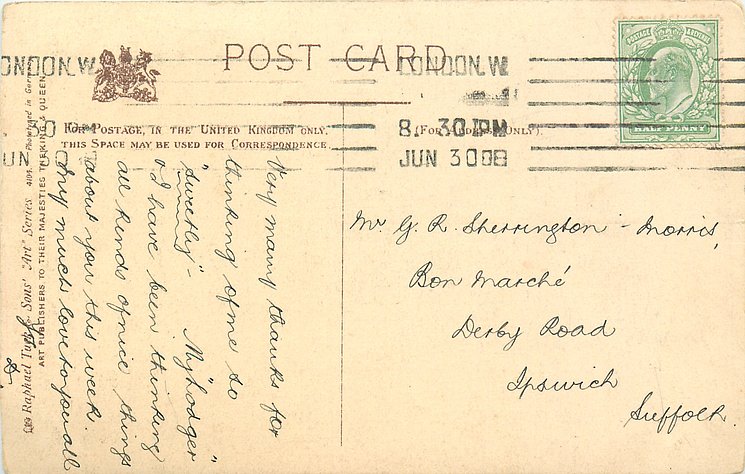 POST CARD
LONDON. W
LONDON. W
8. 30 PM
JUN 30 08
30 PM
JUN
POSTAGE REVENUE
HALF PENNY
FOR POSTAGE, IN THE UNITED KINGDOM ONLY,
THIS SPACE MAY BE USED FOR CORRESPONDENCE
(FOR ADDRESS ONLY).
Raphael Tuck & Sons' "Art" Series
ART PUBLISHERS TO THEIR MAJESTIES THE KING & QUEEN
Very many thanks for
thinking of me so
"sweetly" - My "Lodger"
& I have been thinking
all kinds of nice things
about you this week.
My much love to you all
Mr G. R. Sherrington - Morris,
Bon Marché
Derby Road
Ipswich
Suffolk.